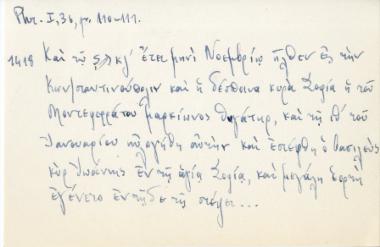 Phr. I, 36, p. 110-111.
1418 Καὶ τῷ ϛϡκζ' ἔτει μηνὶ Νοεμβρίῳ ἦλθεν εἰς τὴν
Κωνσταντινούπολιν καὶ ἡ δέσποινα κυρὰ Σοφία ἡ τοῦ
Μοντεφερράτου μαρκίωνος θυγάτηρ, καὶ τῇ ιθ' τοῦ
Ἰανουαρίου εὐλογήθη αὐτὴν καὶ ἐστέφθη ὁ βασιλεὺς
κὺρ Ἰωάννης ἐν τῇ ἁγίᾳ Σοφίᾳ, καὶ μεγάλη ἑορτὴ
ἐγένετο ἐν τῇδε τῇ στέψει...